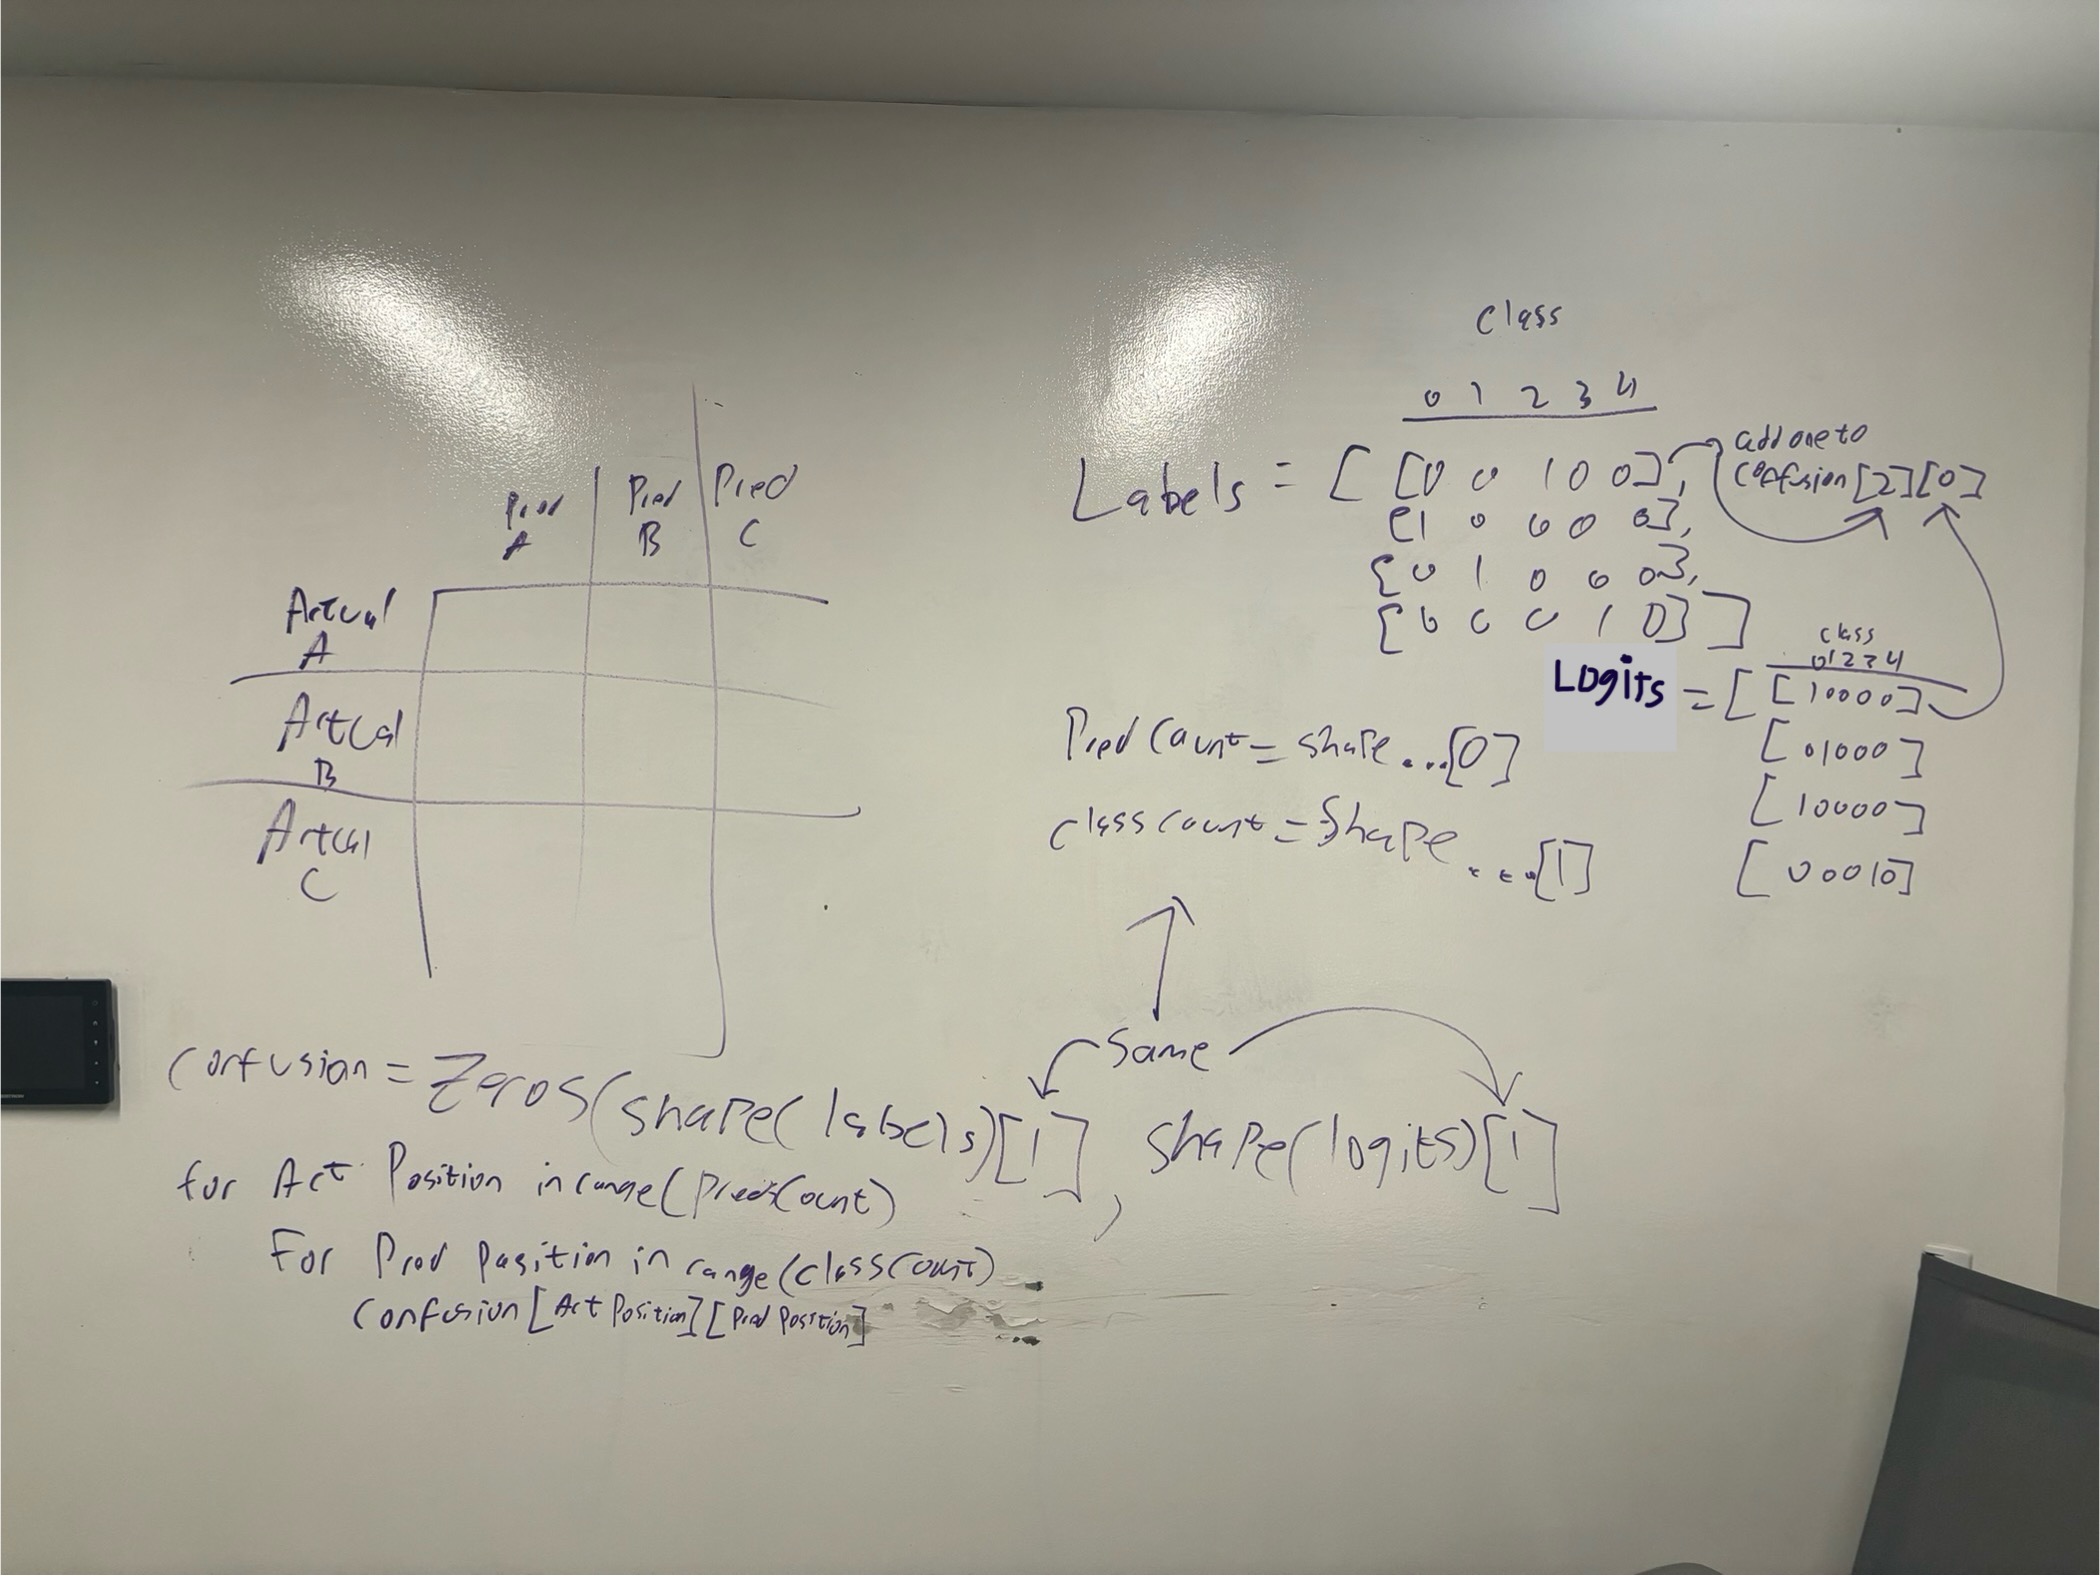 Pred A
Pred B
Pred C
Actual A
Actual B
Actual C
Class
0 1 2 3 4
Labels = [ [0 0 1 0 0],
[1 0 0 0 0],
[0 1 0 0 0],
[0 0 0 1 0] ]
add one to
confusion[2][0]
class
01234
Logits = [ [10000]
[01000]
[10000]
[00010]
Pred Count = shape...[0]
class count = shape....[1]
Same
confusion = Zeros(shape(labels)[1], shape(logits)[1]
for Act Position in range(PredsCount)
For Pred Position in range(classCount)
Confusion[Act Position][Pred Position]